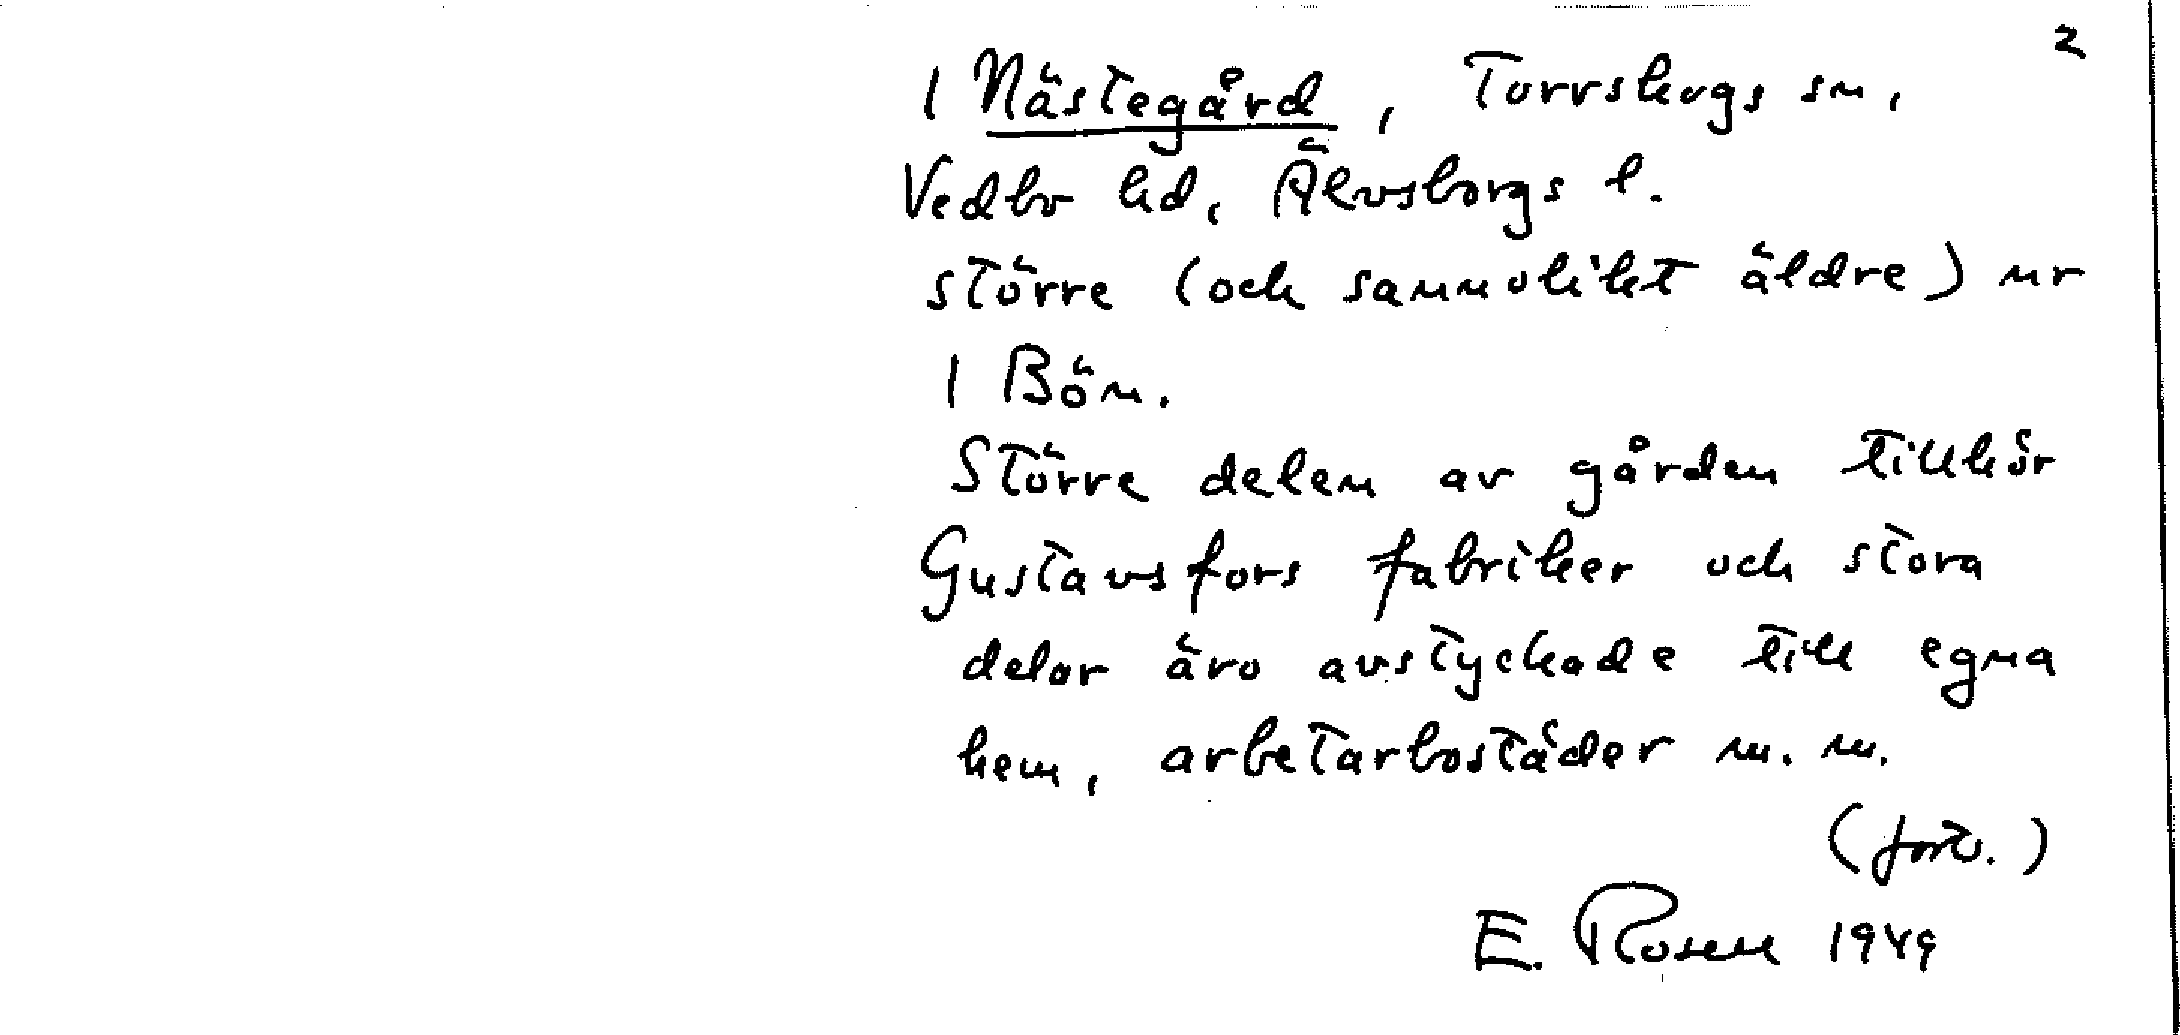 2
1 Nästegård, Torrskogs sn,
Vedbo hd, Älvsborgs l.
större (och sannolikt äldre) nr
1 Bön.
Större delen av gården tillhör
Gustavsfors fabriker och stora
delar äro avstyckade till egna
hem, arbetarbostäder m. m.
(forts.)
E. Rosell 1949